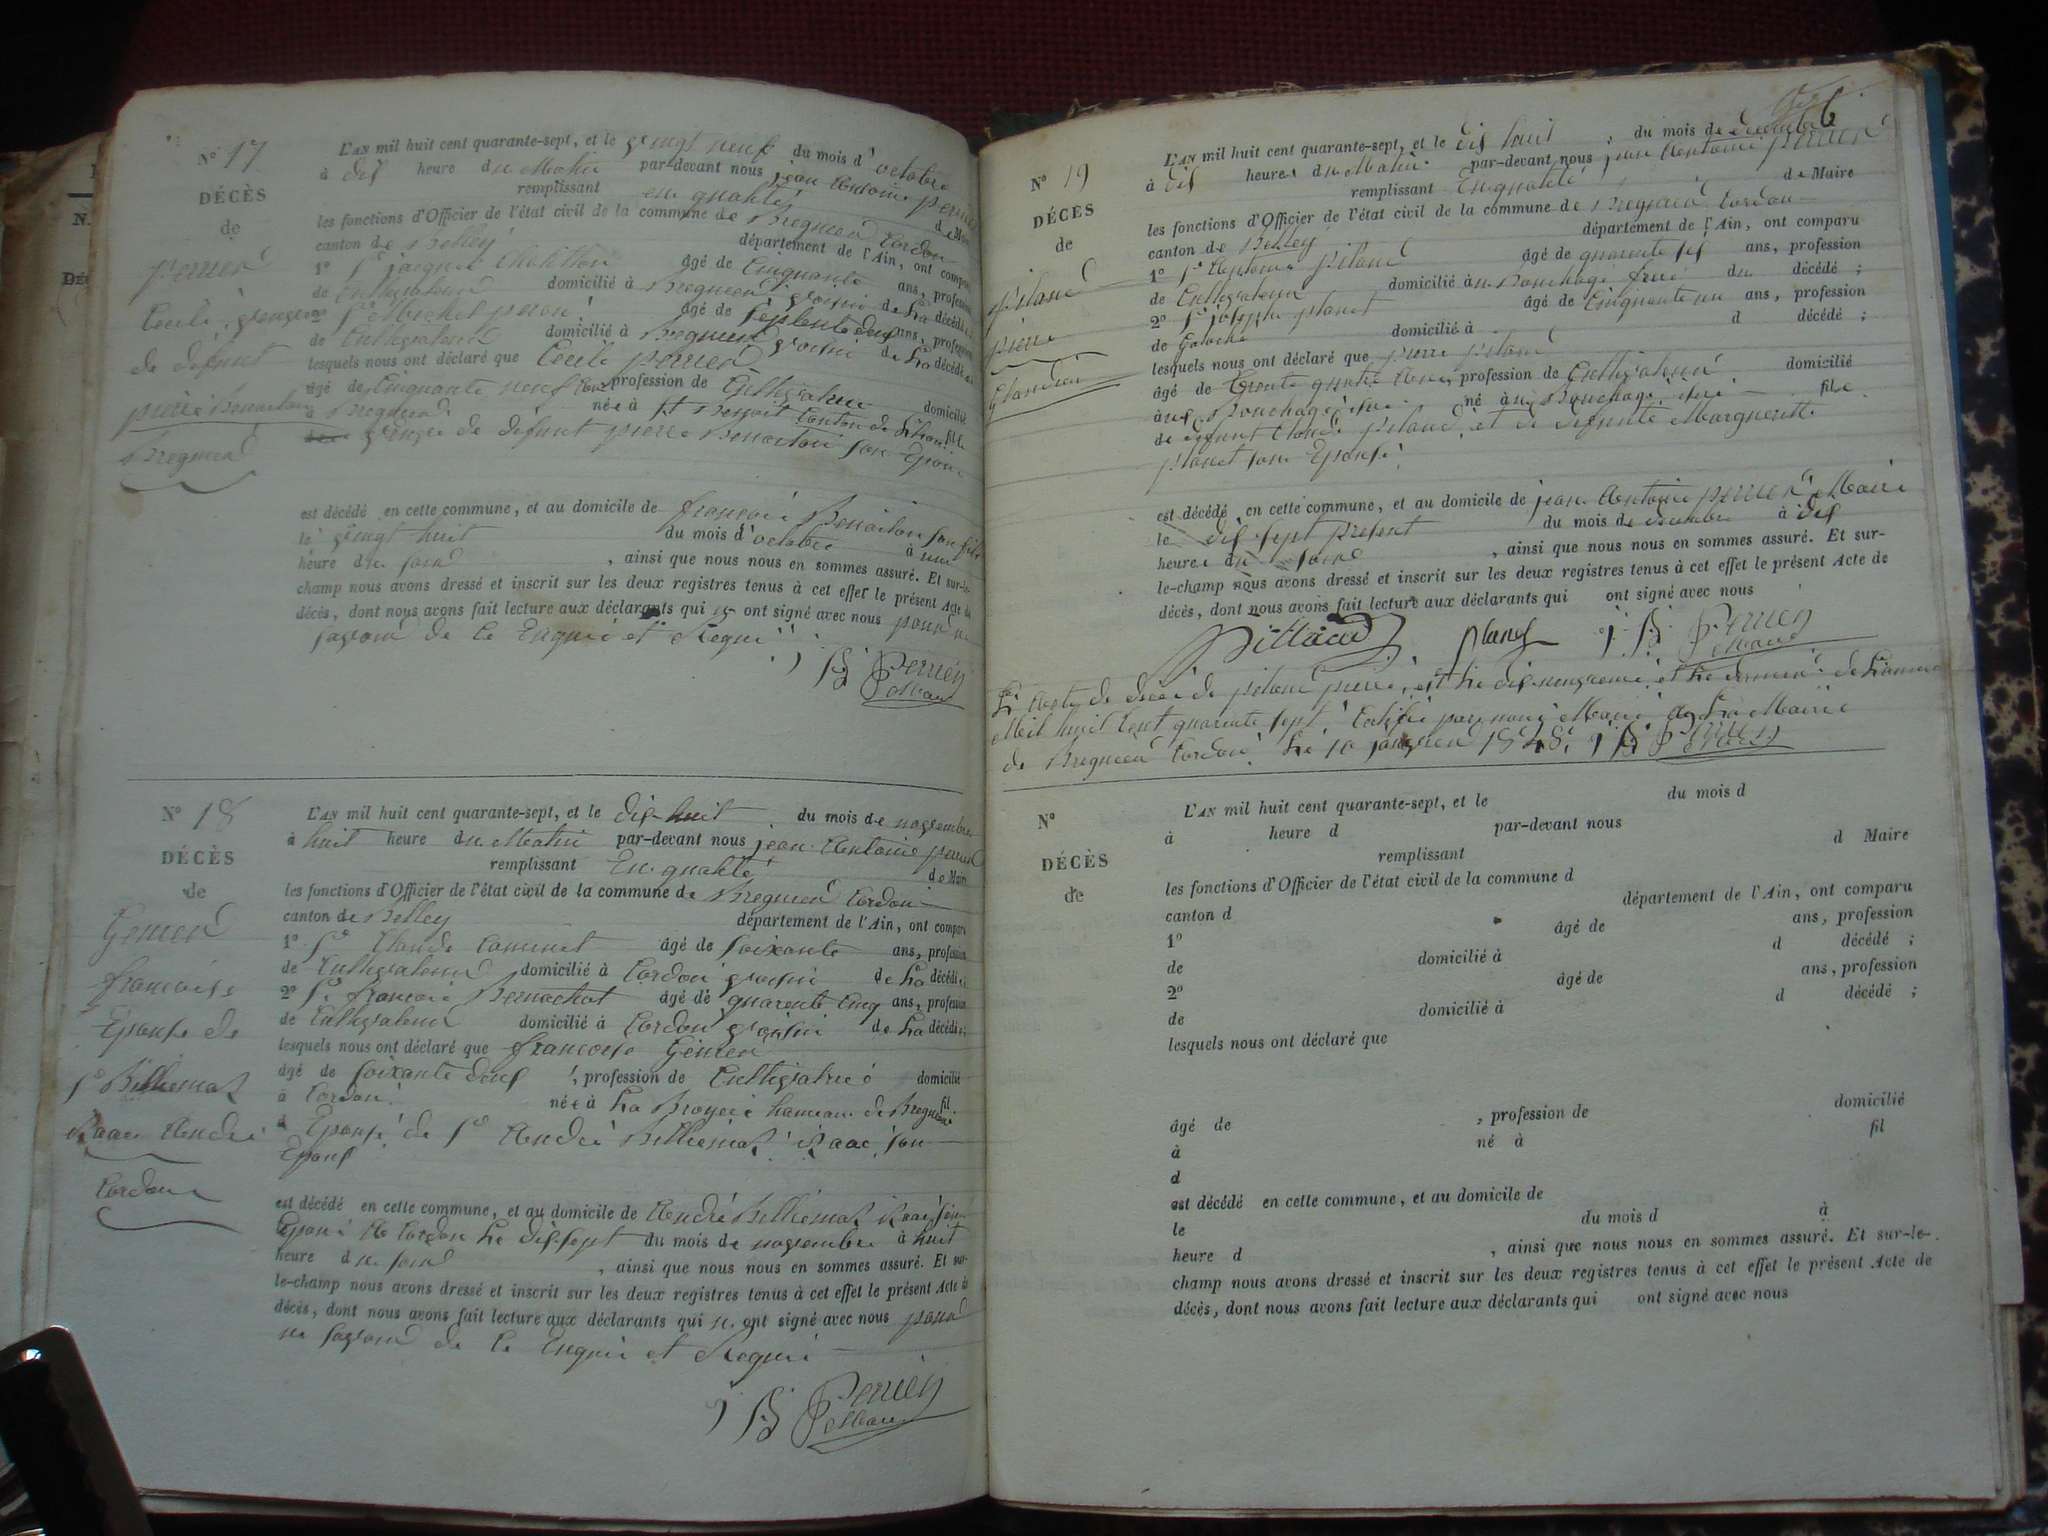 N° 17
DÉCÈS
de
perrier
Cecile
de defunt
pierre Benoiton
Bregnier
L'AN mil huit cent quarante-sept, et le vingt neuf du mois d'octobre
à dix heure du Matin par-devant nous jean Antoine perrier
remplissant en qualité de Maire
les fonctions d'Officier de l'état civil de la commune de Bregnier Cordon
canton de Belley département de l'Ain, ont comparu
1° Sr jacques âgé de Cinquante ans, profession
de Cultivateur domicilié à Bregnier voisin de La décédée
2° Sr Michel âgé de septente deux ans, profession
de Cultivateur domicilié à Bregnier voisin de La décédée
lesquels nous ont déclaré que Cecile perrier
âgé de Cinquante neuf ans profession de Cultivatrice domicilié
à Bregnier née à St Benoit Canton de fille
de defunt pierre Benoiton son Epoux
est décédé en cette commune, et au domicile de francois Benoiton son fils
le vingt huit du mois d'octobre à une
heure du soir , ainsi que nous nous en sommes assuré. Et sur-le-
champ nous avons dressé et inscrit sur les deux registres tenus à cet effet le présent Acte de
décès, dont nous avons fait lecture aux déclarants qui n ont signé avec nous pour ne
savoir de ce Enquis et Requis
j B Perrier
Maire
N° 18
DÉCÈS
de
Genier
francoise
Epouse de
Sr Billiemaz
Isaac André
Cordon
L'AN mil huit cent quarante-sept, et le dix-huit du mois de novembre
à huit heure du Matin par-devant nous jean Antoine perrier
remplissant En qualité de Maire
les fonctions d'Officier de l'état civil de la commune de Bregnier Cordon
canton de Belley département de l'Ain, ont comparu
1° Sr Claude âgé de soixante ans, profession
de Cultivateur domicilié à Cordon voisin de La décédée
2° Sr francois Bernachot âgé de quarente Cinq ans, profession
de Cultivateur domicilié à Cordon voisin de La décédée
lesquels nous ont déclaré que francoise Genier
âgé de soixante deux , profession de Cultivatrice domicilié
à Cordon née à La Bruyere hameau de Bregnier fil
d Epouse de Sr André Billiemaz Isaac son
Epoux
est décédé en cette commune, et au domicile de André Billiemaz Isaac son
Epoux Le dix sept du mois de novembre à huit
heure du soir , ainsi que nous nous en sommes assuré. Et sur-
le-champ nous avons dressé et inscrit sur les deux registres tenus à cet effet le présent Acte de
décès, dont nous avons fait lecture aux déclarants qui n ont signé avec nous pour
ne savoir de ce Enquis et Requis
j B Perrier
Maire
6
N° 19
DÉCÈS
de
pitaud
pierre
L'AN mil huit cent quarante-sept, et le dix huit du mois de decembre
à dix heures du Matin par-devant nous jean Antoine perrier
remplissant En qualité de Maire
les fonctions d'Officier de l'état civil de la commune de Bregnier Cordon
canton de Belley département de l'Ain, ont comparu
1° Sr Antoine pitaud âgé de quarente six ans, profession
de Cultivateur domicilié à Bouchage frere du décédé ;
2° Sr joseph planet âgé de Cinquante un ans, profession
de domicilié à d décédé ;
lesquels nous ont déclaré que pierre pitaud
âgé de trente quatre ans, profession de Cultivateur domicilié
à Bouchage isere né à Bouchage isere fils
de defunt Claude pitaud et de defunte Marguerite
planet son Epouse
est décédé en cette commune, et au domicile de jean Antoine perrier Maire
le dix sept present du mois de decembre à dix
heures du soir , ainsi que nous nous en sommes assuré. Et sur-
le-champ nous avons dressé et inscrit sur les deux registres tenus à cet effet le présent Acte de
décès, dont nous avons fait lecture aux déclarants qui ont signé avec nous
Pittaud planet j B Perrier
Maire
L'Acte de décès de pitaud pierre, est Le dix neuvieme et Le dernier de L'année
Mil huit Cent quarente sept Certifié par nous Maire de La Mairie
de Bregnier Cordon Le 10 janvier 1848 j B Perrier
N°
DÉCÈS
de
L'AN mil huit cent quarante-sept, et le du mois d
à heure d par-devant nous
remplissant d Maire
les fonctions d'Officier de l'état civil de la commune d
canton d département de l'Ain, ont comparu
1° âgé de ans, profession
de domicilié à d décédé ;
2° âgé de ans, profession
de domicilié à d décédé ;
lesquels nous ont déclaré que
âgé de , profession de domicilié
à né à fil
d
est décédé en cette commune, et au domicile de
le du mois d à
heure d , ainsi que nous nous en sommes assuré. Et sur-le-
champ nous avons dressé et inscrit sur les deux registres tenus à cet effet le présent Acte de
décès, dont nous avons fait lecture aux déclarants qui ont signé avec nous